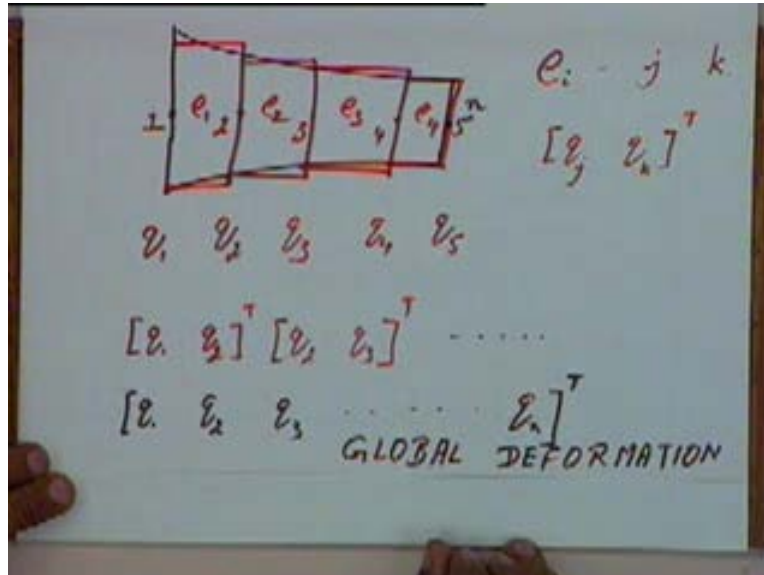 e₁ e₂ e₃ e₄
1 2 3 4 5 n
eᵢ - j k
[q_j q_k]ᵀ
q₁ q₂ q₃ q₄ q₅
[q₁ q₂]ᵀ [q₂ q₃]ᵀ ......
[q₁ q₂ q₃ ...... qₙ]ᵀ
GLOBAL DEFORMATION